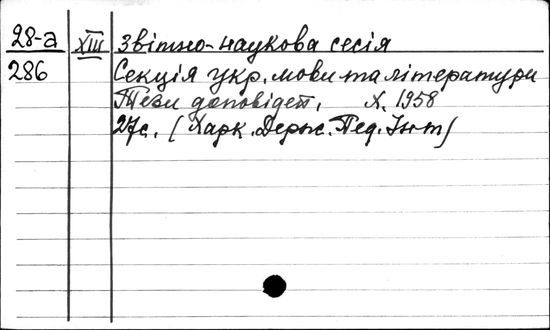 28-а XIII Звітно-наукова сесія
286 Секція укр. мови та літератури
Тези доповідей. Х. 1958
27с. (Харк. Держ. Пед. Інт)